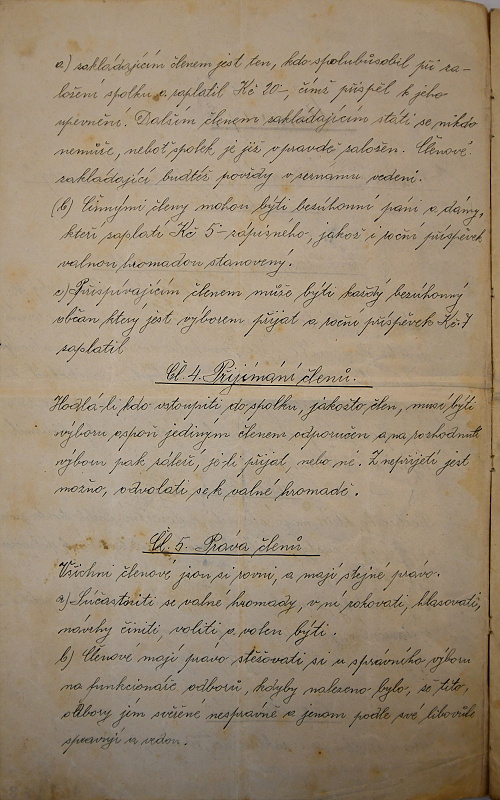 a) zakládajícím členem jest ten, kdo spolupůsobil při za-
ložení spolku a zaplatil Kč 20–, čímž přispěl k jeho
upevnění. Dalším členem zakládajícím státi se nikdo
nemůže, neboť spolek je již v pravdě založen. Členové
zakládající budtéž povždy v seznamu vedeni.
(b) Činnými členy mohou býti bezúhonní páni a dámy,
kteří zaplatí Kč 5– zápisného, jakož i roční příspěvek
valnou hromadou stanovený.
c) Přispívajícím členem může býti každý bezúhonný
občan který jest výborem přijat a roční příspěvek Kč 7
zaplatil
Čl. 4. Přijímání členů.
Hodlá-li kdo vstoupiti do spolku, jakožto člen, musí býti
výboru aspoň jediným členem odporučen a na rozhodnutí
výboru pak záleží, jeli přijat, nebo né. Z nepřijetí jest
možno, odvolati se k valné hromadě.
Čl. 5. Práva členů
Všichni členové jsou si rovni, a mají stejné právo.
a) Súčastniti se valné hromady, v ní rokovati, hlasovati,
návrhy činiti, voliti a volen býti.
b) Členové mají právo stěžovati si u správního výboru
na funkcionáře odborů, kdyby nalezeno bylo, že tito,
odbory jim svěřené nesprávně a jenom podle své libovůle
spravují a vedou.